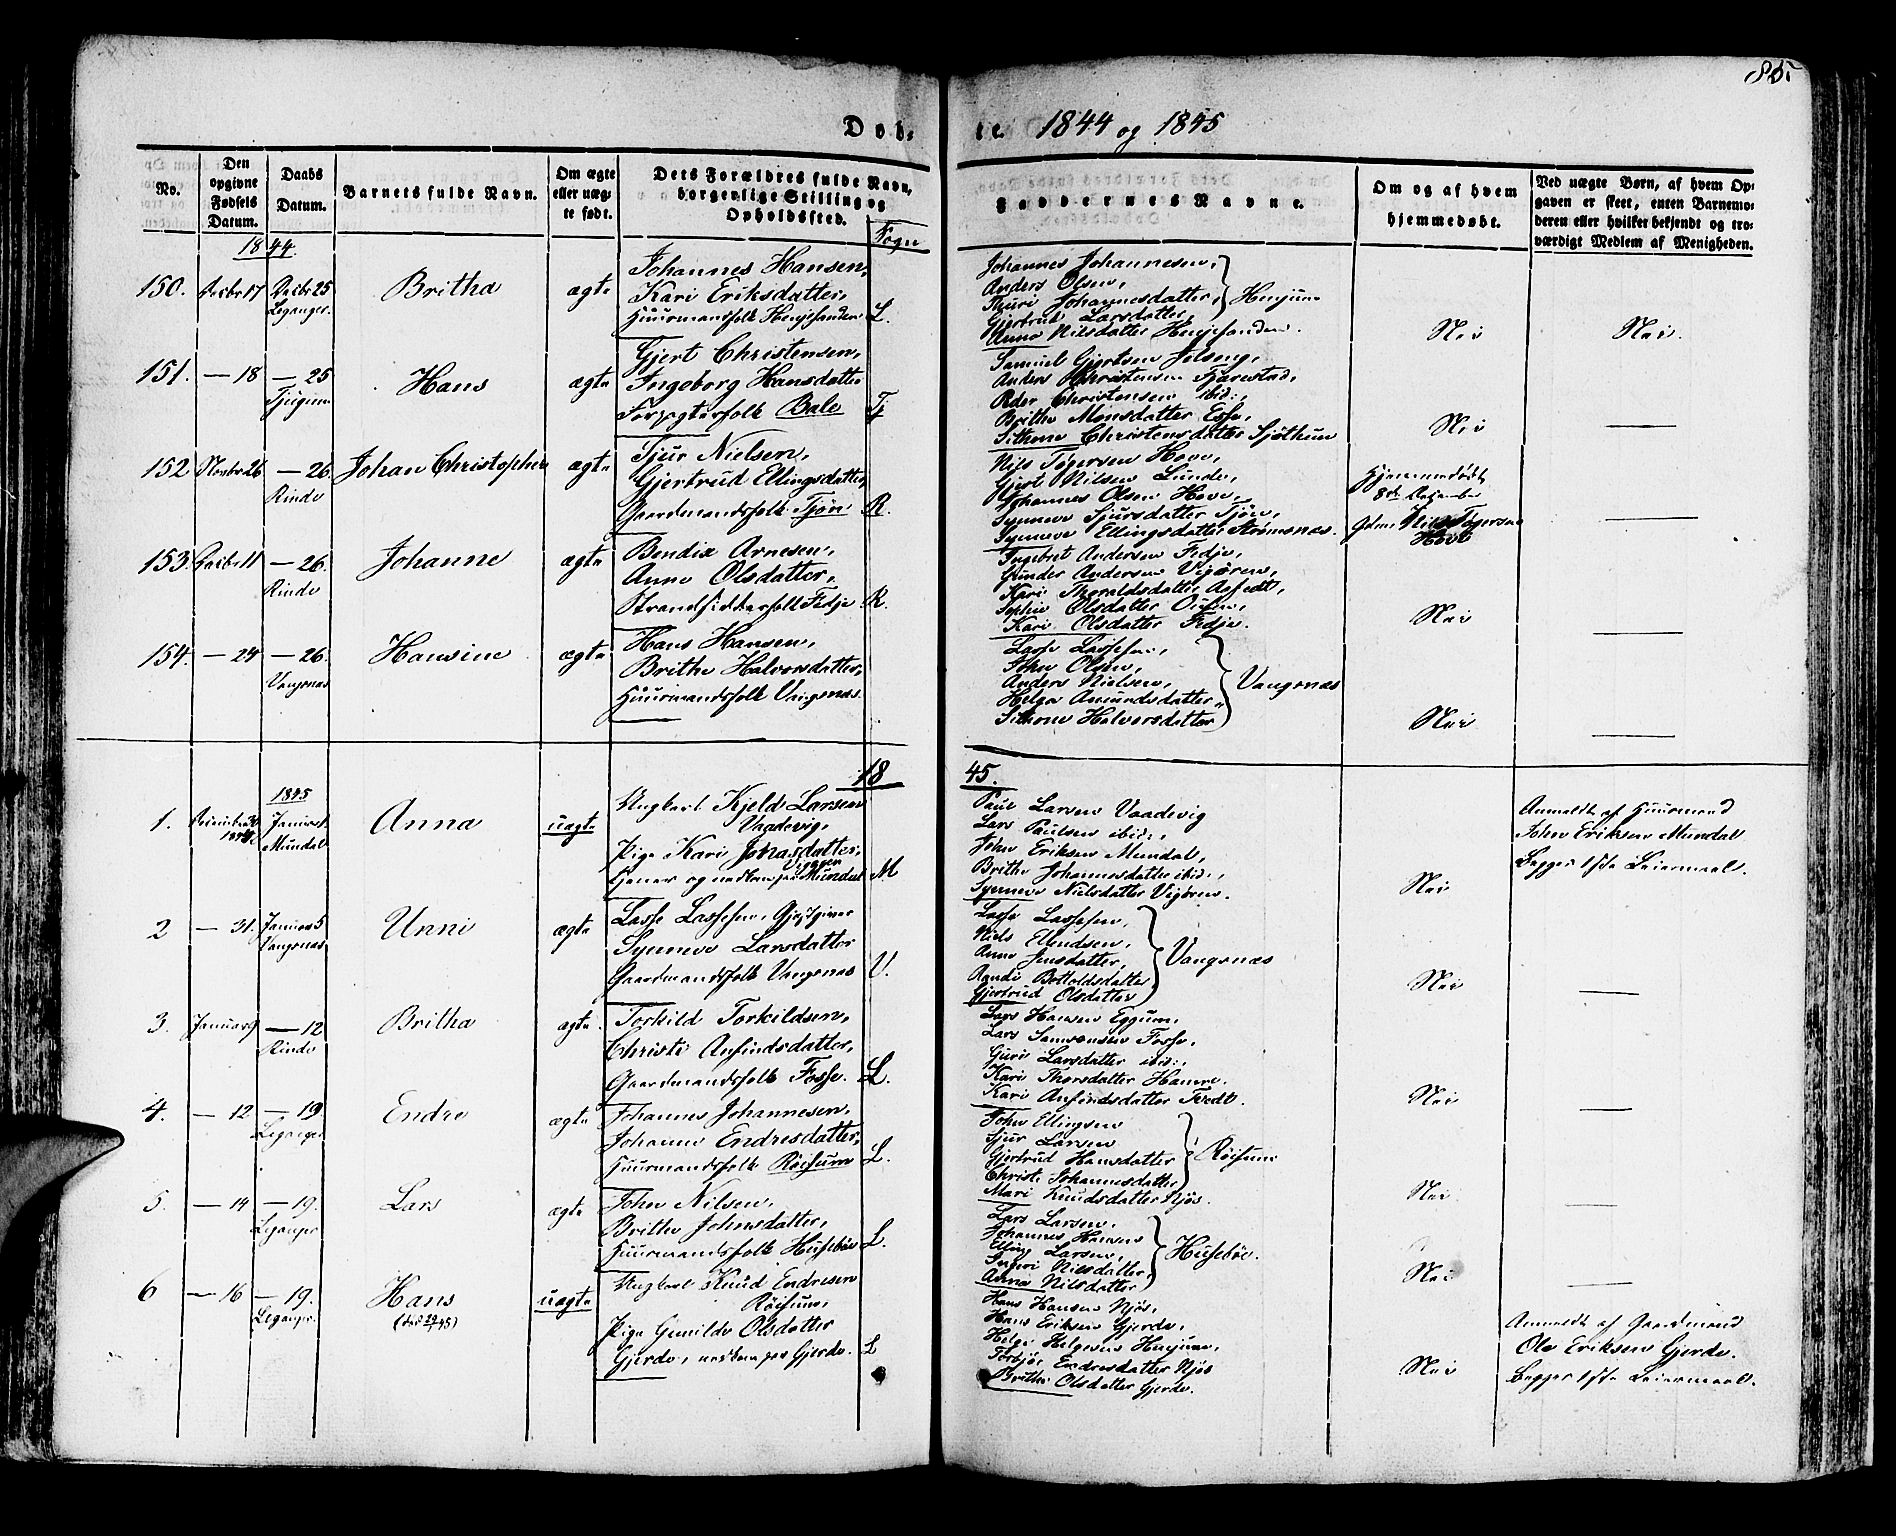 85.
Døb- te. 1844 og 1845
No.
Den opgivne Fødsels Datum.
Daabs Datum.
Barnets fulde Navn.
Om ægte eller uægte født.
Dets Forældres fulde Navn, borgerlige Stilling og Opholdssted.
Sogn
Faddernes Navne.
Om og af hvem hjemmedøbt.
Ved uægte Børn, af hvem Opgaven er skeet, enten Barnemoderen eller hvilket bekjendt og troværdigt Medlem af Menigheden.
1844.
150. Decbr 17 Decbr 25 Leganger Britha ægte
Johannes Hansen,
Kari Eriksdatter,
Huusmandsfolk Henjesanden L.
Johannes Johannesen,
Anders Olsen,
Thuri Johannesdatter,
Gjertrud Larsdatter, Henjum
Anna Nilsdatter Henjesanden.
Nei Nei.
151. — 18 — 25 Tjugum Hans ægte
Gjert Christensen,
Ingeborg Hansdatter
Forpagterfolk Bale Tj
Samuel Gjertsen
Anders Christensen Fjærestad,
Peder Christensen ibid:,
Brithe Monsdatter Esse,
Sithone Christensdatter Sjøthun
Nei —
152 Novbr 26 — 26 Rinde Johan Christopher ægte
Sjur Nielsen,
Gjertrud Ellingsdatter,
Gaardmandsfolk Tjøn R.
Nils Tøgersen Hove,
Gjert Nilsen Lunde,
Johannes Olsen Hove,
Synneve Sjursdatter Tjøn,
Synneve Ellingsdatter Strømsnæs.
Hjemmedøbt
8de December
Nils Tøgersen
Hove
—
153. Decbr 11 — 26. Rinde Johanne ægte
Bendix Arnesen,
Anne Olsdatter,
Strandsidderfolk Fedje R.
Ingebret Andersen Fedje,
Gunder Andersen Vigøren,
Kari Thoraldsdatter
Sophie Olsdatter
Kari Olsdatter Fedje.
Nei —
154. — 24 — 26. Vangsnæs Hansine ægte
Hans Hansen,
Brithe Halvorsdatter,
Huusmandsfolk Vangsnæs
Lasse Lassesen,
John Olsen,
Anders Nielsen,
Helga Amundsdatter, Vangsnæs
Sithone Halvorsdatter
Nei —
1845.
1845
1. December 30 1844 Januar 1. Mundal Anna uægte
Ungkarl Kjeld Larsen
Vaadevig,
Pige Kari Johnasdatter,
Vigøren
tjener og nedkom paa Mundal M
Paul Larsen Vaadevig
Lars Paulsen ibid:,
John Eriksen Mundal,
Brithe Johannesdatter ibid:,
Synneve Nielsdatter Vigøren.
Nei
Anmeldt af Huusmand
John Eriksen Mundal
Begges 1ste Leiermaal.
2 — 31. Januar 5 Vangsnæs Unni ægte
Lasse Lassesen, Gjestgiver
Synneve Larsdatter
Gaardmandsfolk Vangsnæs V.
Lasse Lassesen,
Niels Ellendsen,
Anne Jensdatter,
Randi Botholdsdatter Vangsnæs
Gjertrud Olsdatter
Nei —
3. Januar 9 — 12 Rinde Britha ægte
Torkild Torkildsen,
Christi Anfindsdatter,
Gaardmandsfolk Fosse. L.
Lars Hansen Eggum,
Lars Samsonsen Fosse,
Guri Larsdatter ibid:,
Kari Thorsdatter Hamre.
Kari Anfindsdatter Tvedt.
Nei —
4. — 12 — 19. Leganger Endre ægte
Johannes Johannesen,
Johanne Endresdatter,
Huusmandsfolk Røisum L.
John Ellingsen
Sjur Larsen
Gjertrud Hansdatter
Christi Johannesdatter Røisum
Mari Knudsdatter Njøs.
Nei —
5. — 14 — 19. Leganger Lars ægte
John Nilsen,
Brithe Johnsdatter,
Huusmandsfolk Husebøe L.
Lars Larsen,
Johannes Hansen
Elling Larsen,
Ingeri Nilsdatter, Husebøe.
Anna Nilsdatter
Nei —
6 — 16 — 19. Leganger. Hans uægte
Ungkarl Knud Endresen
Røisum,
Pige Gunilde Olsdatter
Gjerde, nedkom paa Gjerde. L
Hans Hansen Njøs,
Hans Eriksen Gjerde,
Helge Helgesen Henjum,
Torbjør Endresdatter Njøs
Brithe Olsdatter Gjerde.
Nei
Anmeldt af Gaardmand
Ole Eriksen Gjerde.
Begges 1ste Leiermaal.